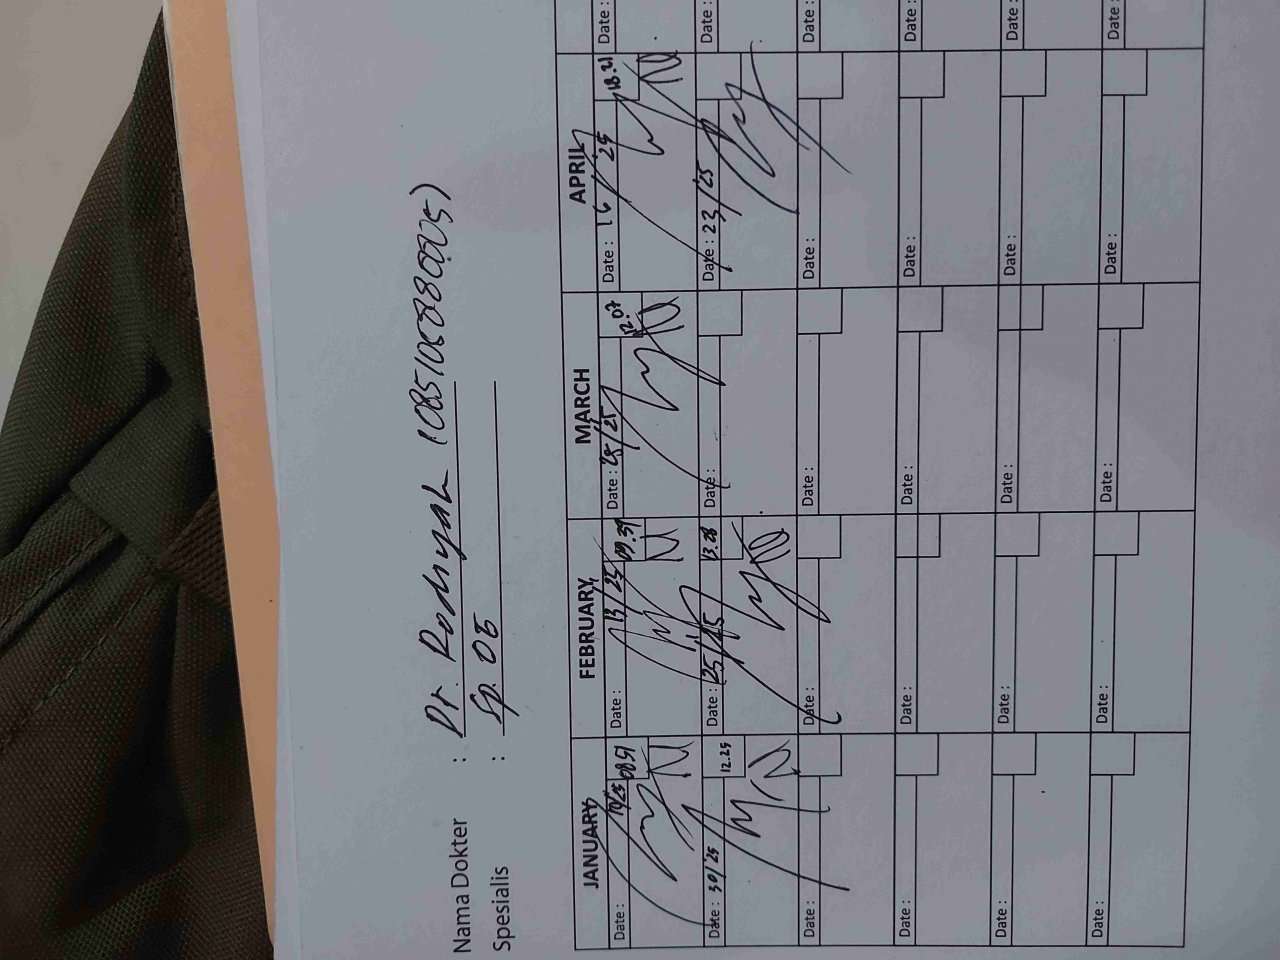 Nama Dokter : Dr. Rodiyah
Spesialis : Sp. OG
JANUARY FEBRUARY MARCH APRIL
Date : 10/25 0851 Date : 13/25 09.39 Date : 25/25 12.07 Date : 16/25 18.21 Date :
Date : 30/25 12.25 Date : 25/25 13.28 Date : Date : 23/25 Date :
Date : Date : Date : Date : Date :
Date : Date : Date : Date : Date :
Date : Date : Date : Date : Date :
Date : Date : Date : Date : Date :